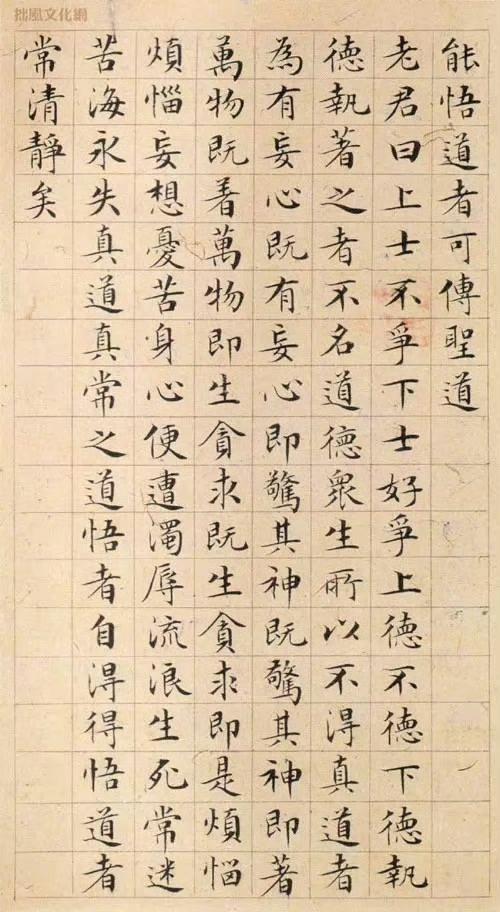 拙風文化網
能悟道者可傳聖道
老君曰上士不爭下士好爭上德不德下德執
德執著之者不名道德眾生所以不淂真道者
為有妄心既有妄心即驚其神既驚其神即著
萬物既着萬物即生貪求既生貪求即是煩惱
煩惱妄想憂苦身心便遭濁辱流浪生死常迷
苦海永失真道真常之道悟者自淂得悟道者
常清靜矣